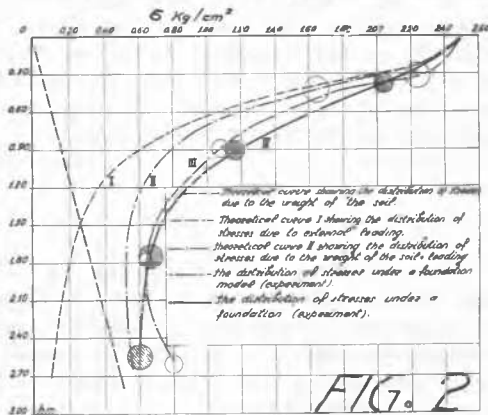 σ Kg/cm²
0 0.20 0.40 0.60 0.80 1.00 1.20 1.40 1.60 1.80 2.00 2.20 2.40 2.60
0.30
0.60
0.90
1.20
1.80
2.10
2.40
2.70
3.00
I II III IV
Theoretical curve showing the distribution of stresses
due to the weight of the soil.
Theoretical curve I showing the distribution of
stresses due to external loading.
Theoretical curve II showing the distribution of
stresses due to the weight of the soil + loading
the distribution of stresses under a foundation
model (experiment).
the distribution of stresses under a
foundation (experiment).
FIG. 2